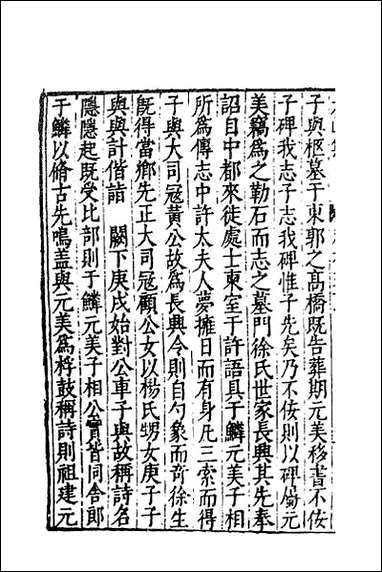 子與柩墓于東郭之高橋既告葬期元美移書不佞
子碑我志子志我碑惟子先矣乃不佞則以碑屬元
美竊為之勒石而志之墓門徐氏世家長興其先奉
詔自中都來徙處士東室于許語具于鱗元美子相
所為傳志中許太夫人夢擁日而有身凡三索而得
子與大司寇黃公故為長興令則自勺象而奇徐生
既得當鄉先正大司寇顧公女以楊氏甥女庚子子
與與計偕詣 闕下庚戌始對公車子與故稱詩名
隱隱起既受比部則于鱗元美子相公實皆同舍郎
于鱗以脩古先鳴盖與元美為桴鼓稱詩則祖建元